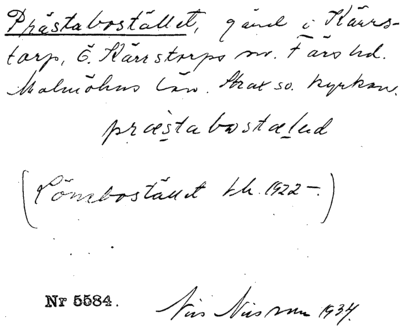 Prästabostället, gård i Kärrs-
torp, Ö. Kärrstorps sn. Färs hd.
Malmöhus län. Strax so. kyrkan.
præstabostæled
(Lönnbostället t.h. 1922-.)
Nr 5584.
Nils Nilsson 1937.